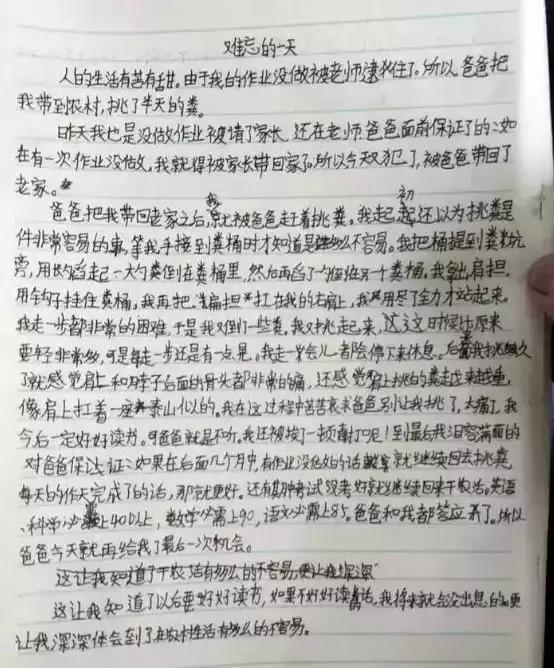 难忘的一天
人的生活有苦有甜。由于我的作业没做被老师逮住了。所以爸爸把
我带到农村,挑了半天的粪。
昨天我也是没做作业被请了家长,还在老师爸爸面前保证了的:如
在有一次作业没做,我就得被家长带回家了。所以今天又犯了,被爸爸带回了
老家。
爸爸把我带回老家之后,我就被爸爸赶着挑粪。我起初还以为挑粪是
件非常容易的事,等我手接到粪桶时才知道是多么不容易。我把桶提到粪坑
旁,用粪舀起一大勺粪倒在粪桶里,然后再舀了一勺倒在另一个粪桶。我拿出肩担,
用钩子挂住粪桶,我再把扁担扛在我的右肩上,我用尽了全力才站起来。
我走一步都非常的困难,于是我又倒了一些粪。我又挑走起来,这次时候比原来
要轻非常多,可是每走一步还是有一点晃。我走一会儿都会停下来休息。后来我挑久
了就感觉肩上和脖子后面的骨头都非常的痛,还感觉肩上挑的粪越来越重,
像肩上扛着一座泰山似的。我在这过程中苦苦哀求爸爸别让我挑了,太痛了,我
今后一定好好读书。可爸爸就是不听,我还被挨了一顿打呢!到最后我泪容满面的
对爸爸保证:如果在后面几个月中,有作业没做的话就继续回去挑粪,
每天的作天完成了的话,那就更好。还有期中考试没考好就继续回来干农活。英语
、科学必需上40以上,数学必需上90,语文必需上85。爸爸和我都答应了。所以
爸爸今天就再给我了最后一次机会。
这让我知道了干农活有多么的不容易,更让我深深
这让我知道了以后要好好读书,如果不好好读书的话,我将来就会没出息的。更
让我深深体会到了在农村生活有多么的不容易。